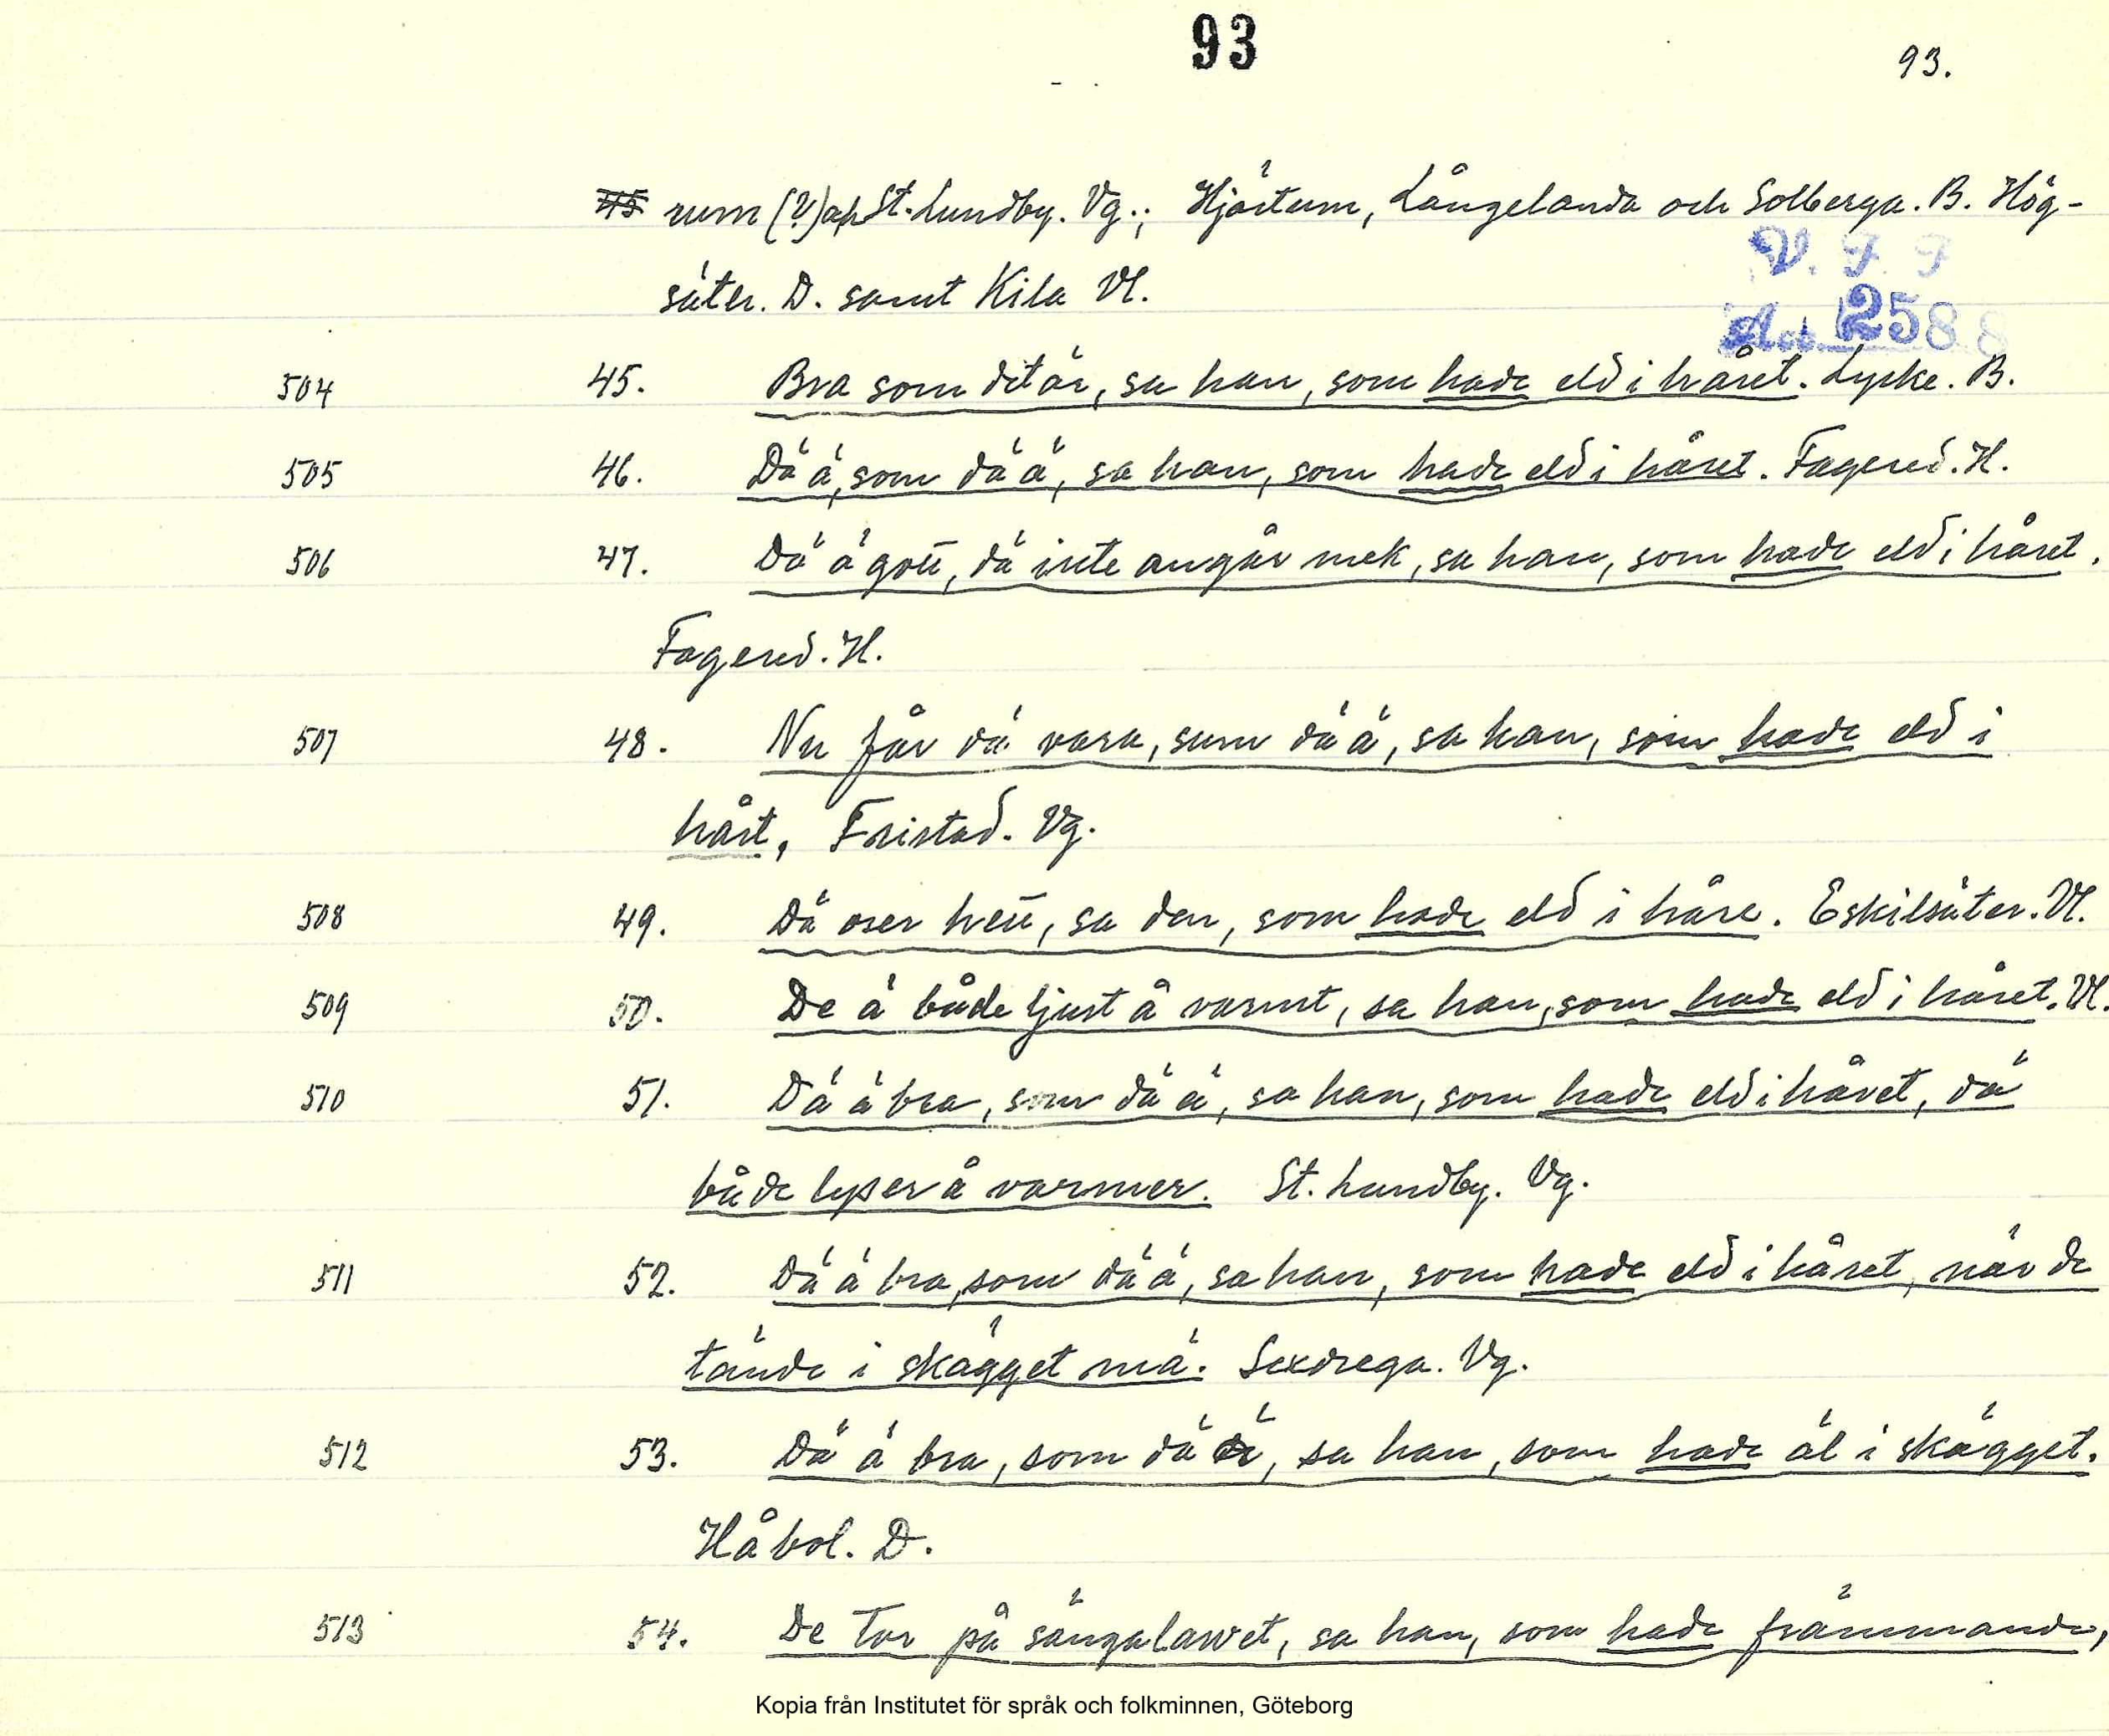 93
93.
rum (?) St. Lundby. Vg.; Hjärtum, Långelanda och Solberga. B. Hög-
V. F. F
säter. D. samt Kila Vl.
Acc. 2588
504 45. Bra som det är, sa han, som hade eld i håret. Lycke. B.
505 46. Dä ä, som dä ä, sa han, som hade eld i håret. Fagered. H.
506 47. Dä ä gott, dä inte angår mek, sa han, som hade eld i håret.
Fagered. H.
507 48. Nu får dä vara, sum dä ä, sa han, som hade eld i
hårt, Fristad. Vg.
508 49. Dä oser hett, sa den, som hade eld i håre. Eskilsäter. Vl.
509 50. De ä både ljust å varmt, sa han, som hade eld i håret. Vl.
510 51. Dä ä bra, som dä ä, sa han, som hade eld i håret, dä
både lyser å varmer. St. Lundby. Vg.
511 52. Dä ä bra, som dä ä, sa han, som hade eld i håret, när de
tände i skägget mä. Sexdrega. Vg.
512 53. Dä ä bra, som dä ä, sa han, som hade äl i skägget.
Håbol. D.
513 54. De tar på sängalawet, sa han, som hade främmande,
Kopia från Institutet för språk och folkminnen, Göteborg